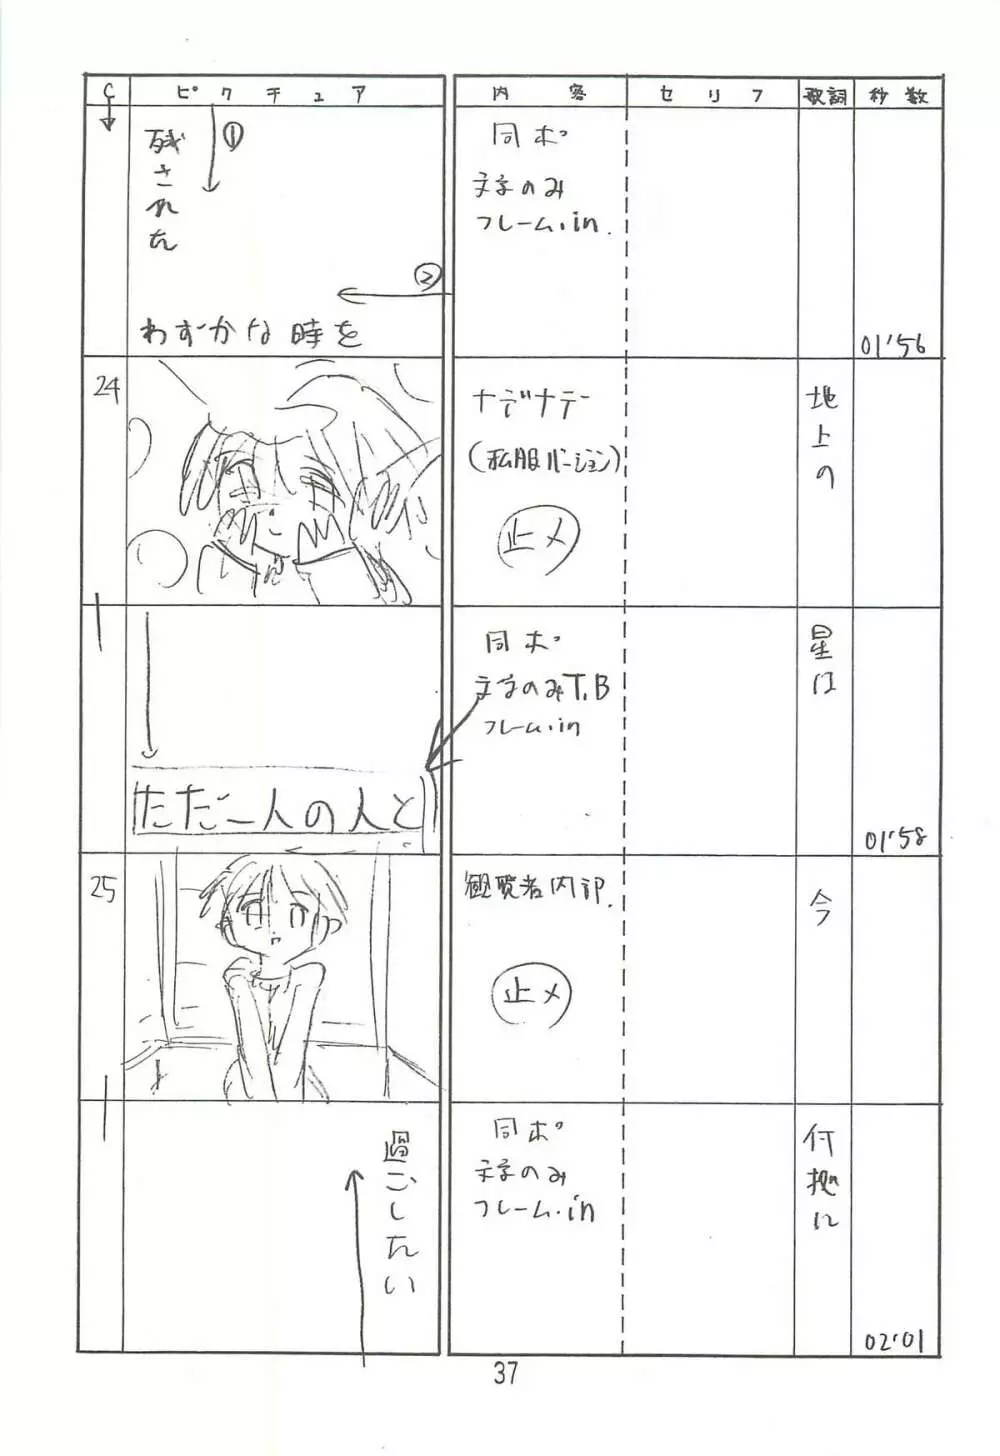 C ピクチュア 内容 セリフ 歌詞 秒数
①
残された
②
わずかな時を
同ポ
文字のみ
フレーム・in.
01'56
24
ナデナデー
(私服バージョン)
止メ
地上の
ただ一人の人と
同ポ
文字のみT.B
フレーム・in
星は
01'58
25
観覧者内部.
止メ
今
過ごしたい
同ポ
文字のみ
フレーム・in
何拠に
02'01
37